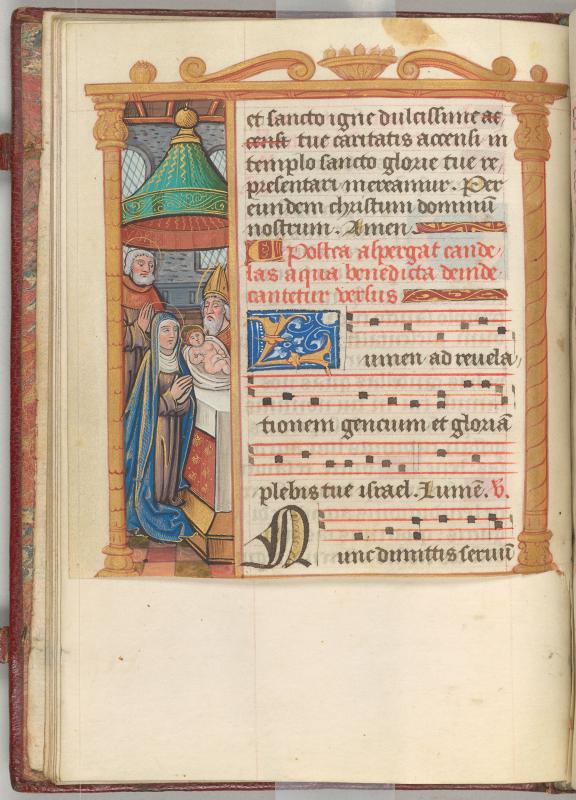 et sancto igne dulcissime ac
censi tue caritatis accensi in
templo sancto glorie tue re,
presentari mereamur. Per
eundem christum dominū
nostrum. Amen
Postea aspergat cande-
las aqua benedicta deinde
cantetur versus
Lumen ad revela,
tionem gencium et gloriā
plebis tue israel. Lumē. V.
Nunc dimittis servū